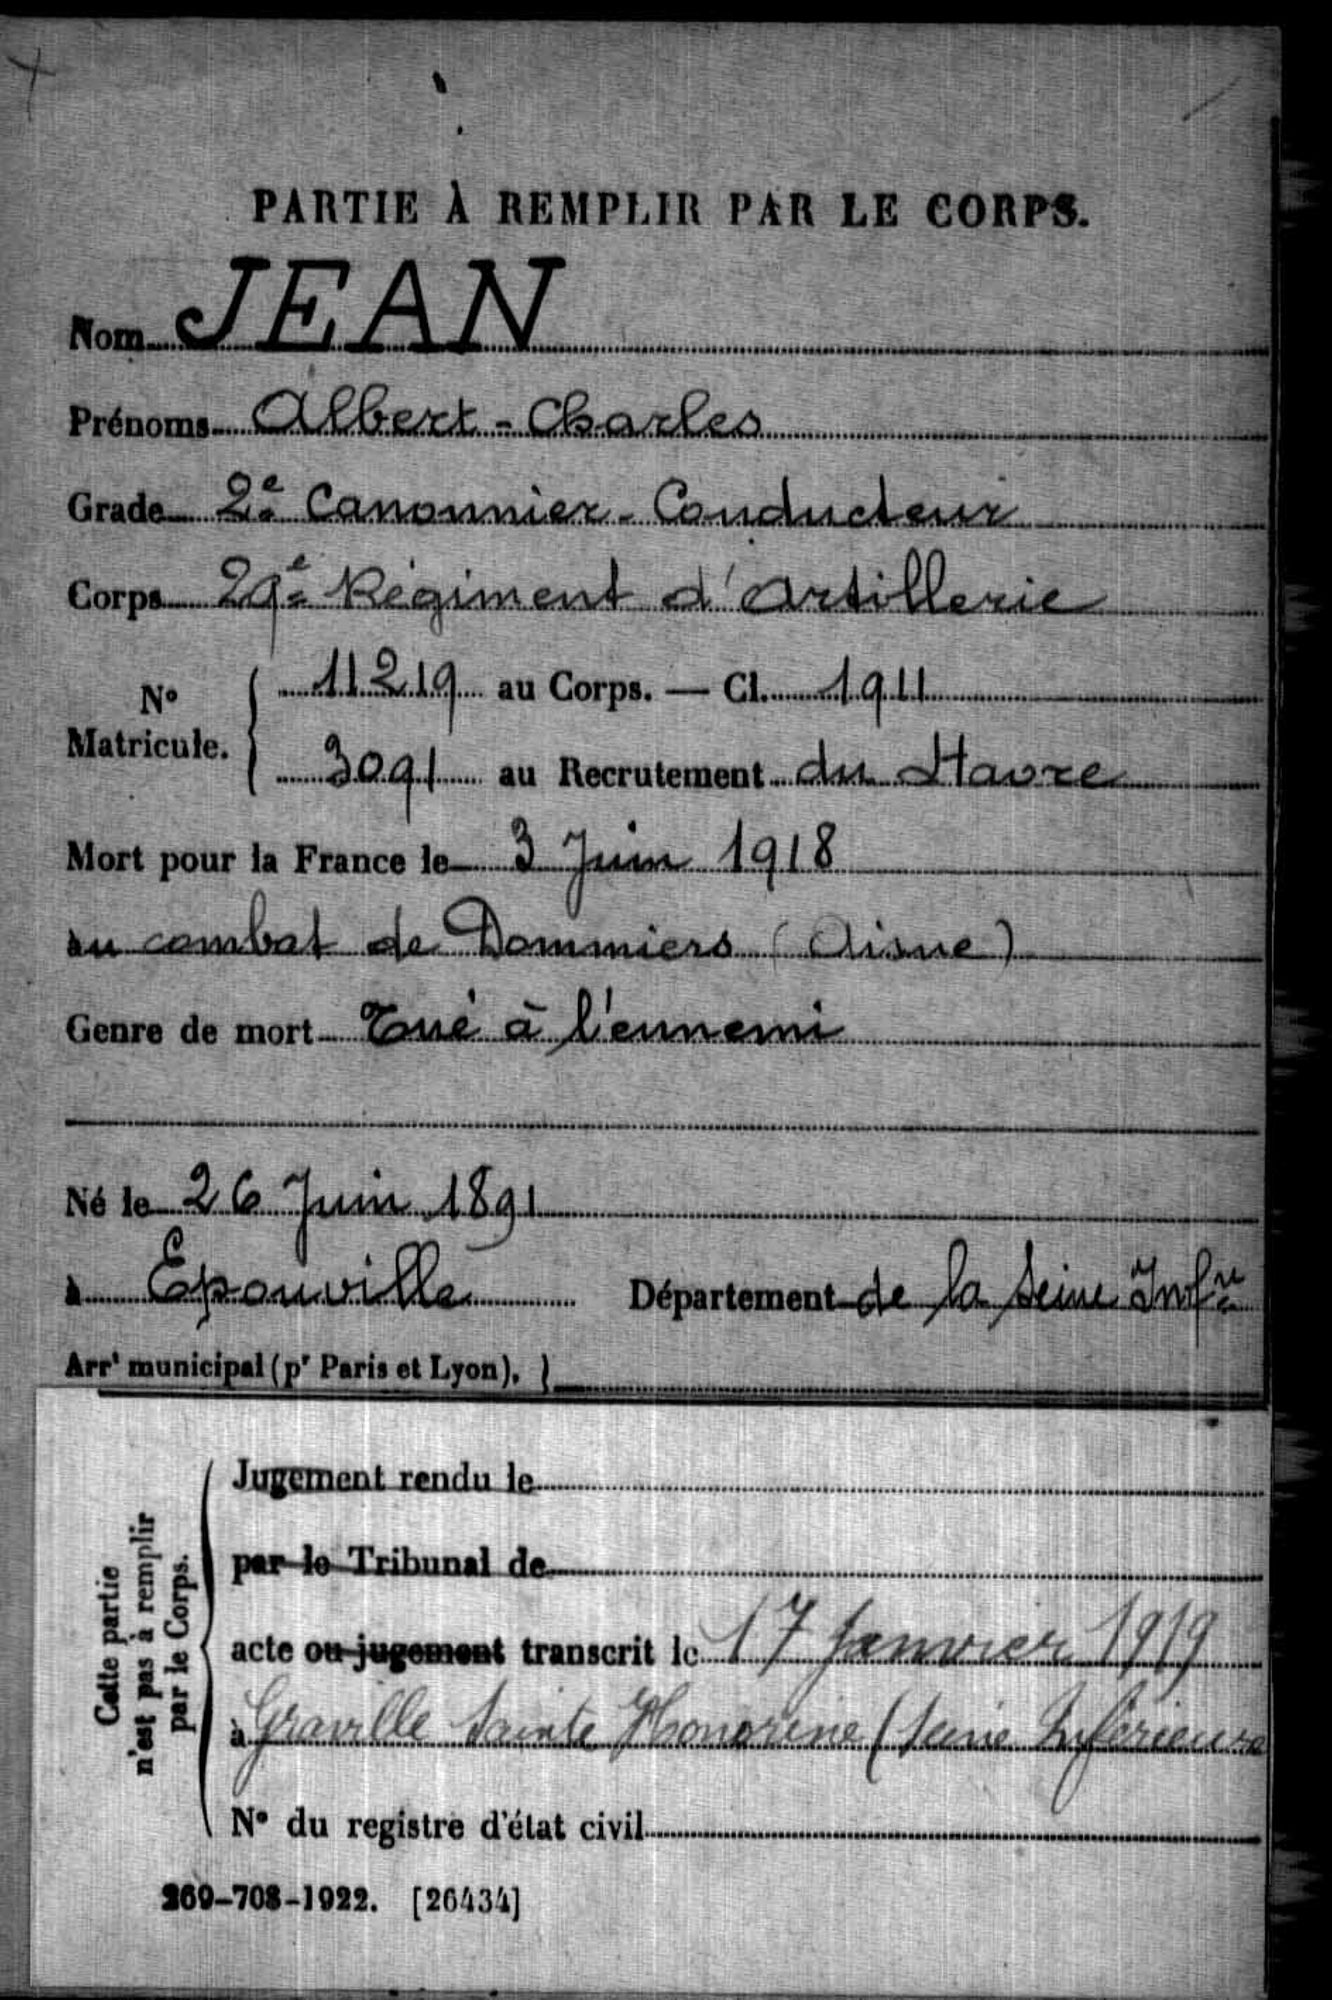 PARTIE À REMPLIR PAR LE CORPS.
Nom JEAN
Prénoms Albert-Charles
Grade 2e Canonnier-Conducteur
Corps 29e Régiment d'Artillerie
No Matricule. { 11219 au Corps. — Cl. 1911
3091 au Recrutement du Havre
Mort pour la France le 3 Juin 1918
au combat de Dommiers (Aisne)
Genre de mort Tué à l'ennemi
Né le 26 Juin 1891
à Epouville Département de la Seine Infre
Arrt municipal (pr Paris et Lyon), }
Cette partie
n'est pas à remplir
par le Corps.
Jugement rendu le
par le Tribunal de
acte ou jugement transcrit le 17 Janvier 1919
à Graville Sainte Honorine (Seine Inférieure
No du registre d'état civil
269-708-1922. [26434]